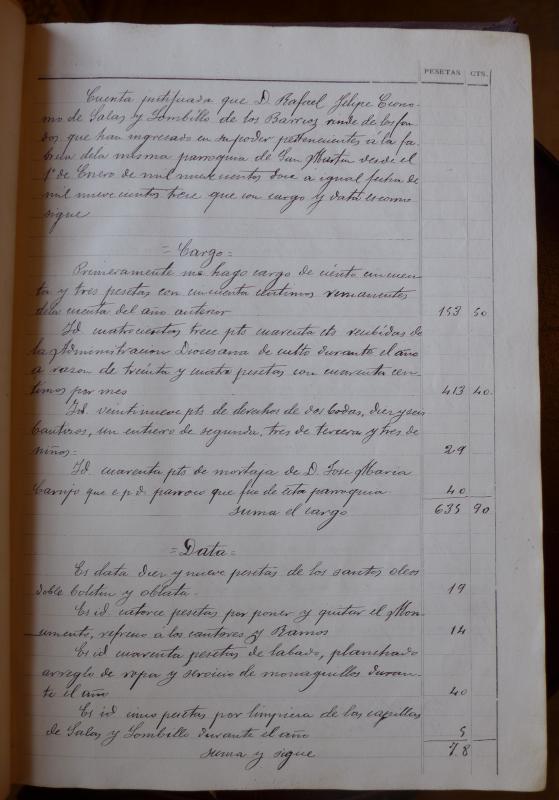 PESETAS CTS.
Cuenta justificada que D. Rafael Felipe Econo-
mo de Salas y Lombillo de los Barrios rinde de los fon-
dos que han ingresado en su poder pertenecientes á la fá-
brica dela misma parroquia de San Martin desde el
1º de Enero de mil nuevecientos doce a igual fecha de
mil nueve cientos trece que con cargo y data es como
sigue
=Cargo=
Primeramente me hago cargo de ciento cincuen-
ta y tres pesetas con cincuenta centimos remanentes
dela cuenta del año anterior 153 50
Id cuatrocientas trece pts cuarenta cts recibidas de
la Administracion Diocesana de culto durante el año
a razon de treinta y cuatro pesetas con cuarenta cen-
timos por mes 413 40.
Id. veintinueve pts de derechos de dos bodas, diez y seis
bautizos, un entierro de segunda, tres de tercera y tres de
niños= 29
Id. cuarenta pts de mortaja de D. Jose Maria
Carujo que e.p.d. parroco que fue de esta parroquia 40
suma el cargo 635 90
=Data=
Es data diez y nueve pesetas de los santos oleos
doble boletin y oblata. 19
Es id. catorce pesetas por poner y quitar el Mon-
umento, refresco á los cantores y Ramos 14
Es id cuarenta pesetas de labado, planchado
arreglo de ropa y servicio de monaguillos duran-
te el año 40
Es id cinco pesetas por limpieza de las capillas
de Salas y Lombillo durante el año 5
suma y sigue 78